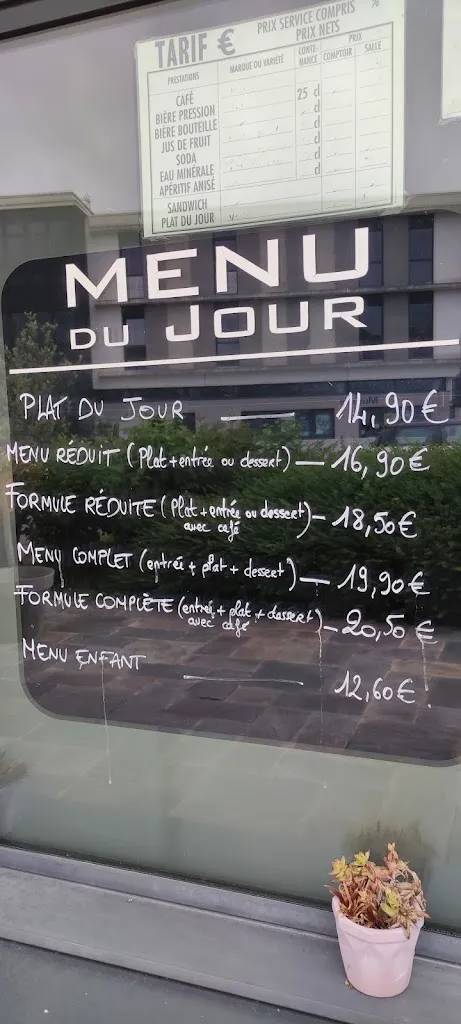 TARIF €
PRIX SERVICE COMPRIS %
PRIX NETS
PRESTATIONS
MARQUE OU VARIÉTÉ
CONTE-
NANCE
PRIX
COMPTOIR
SALLE
CAFÉ
BIÈRE PRESSION 25 d
BIÈRE BOUTEILLE d
JUS DE FRUIT d
SODA d
EAU MINÉRALE d
APÉRITIF ANISÉ d
SANDWICH
PLAT DU JOUR
MENU
DU JOUR
PLAT DU JOUR — 14,90€
MENU RÉDUIT (Plat + entrée ou dessert) — 16,90€
FORMULE RÉDUITE (Plat + entrée ou dessert) – 18,50€
avec café
MENU COMPLET (entrée + plat + dessert) — 19,90€
FORMULE COMPLÈTE (entrée + plat + dessert) – 20,50€
avec café
MENU ENFANT — 12,60€